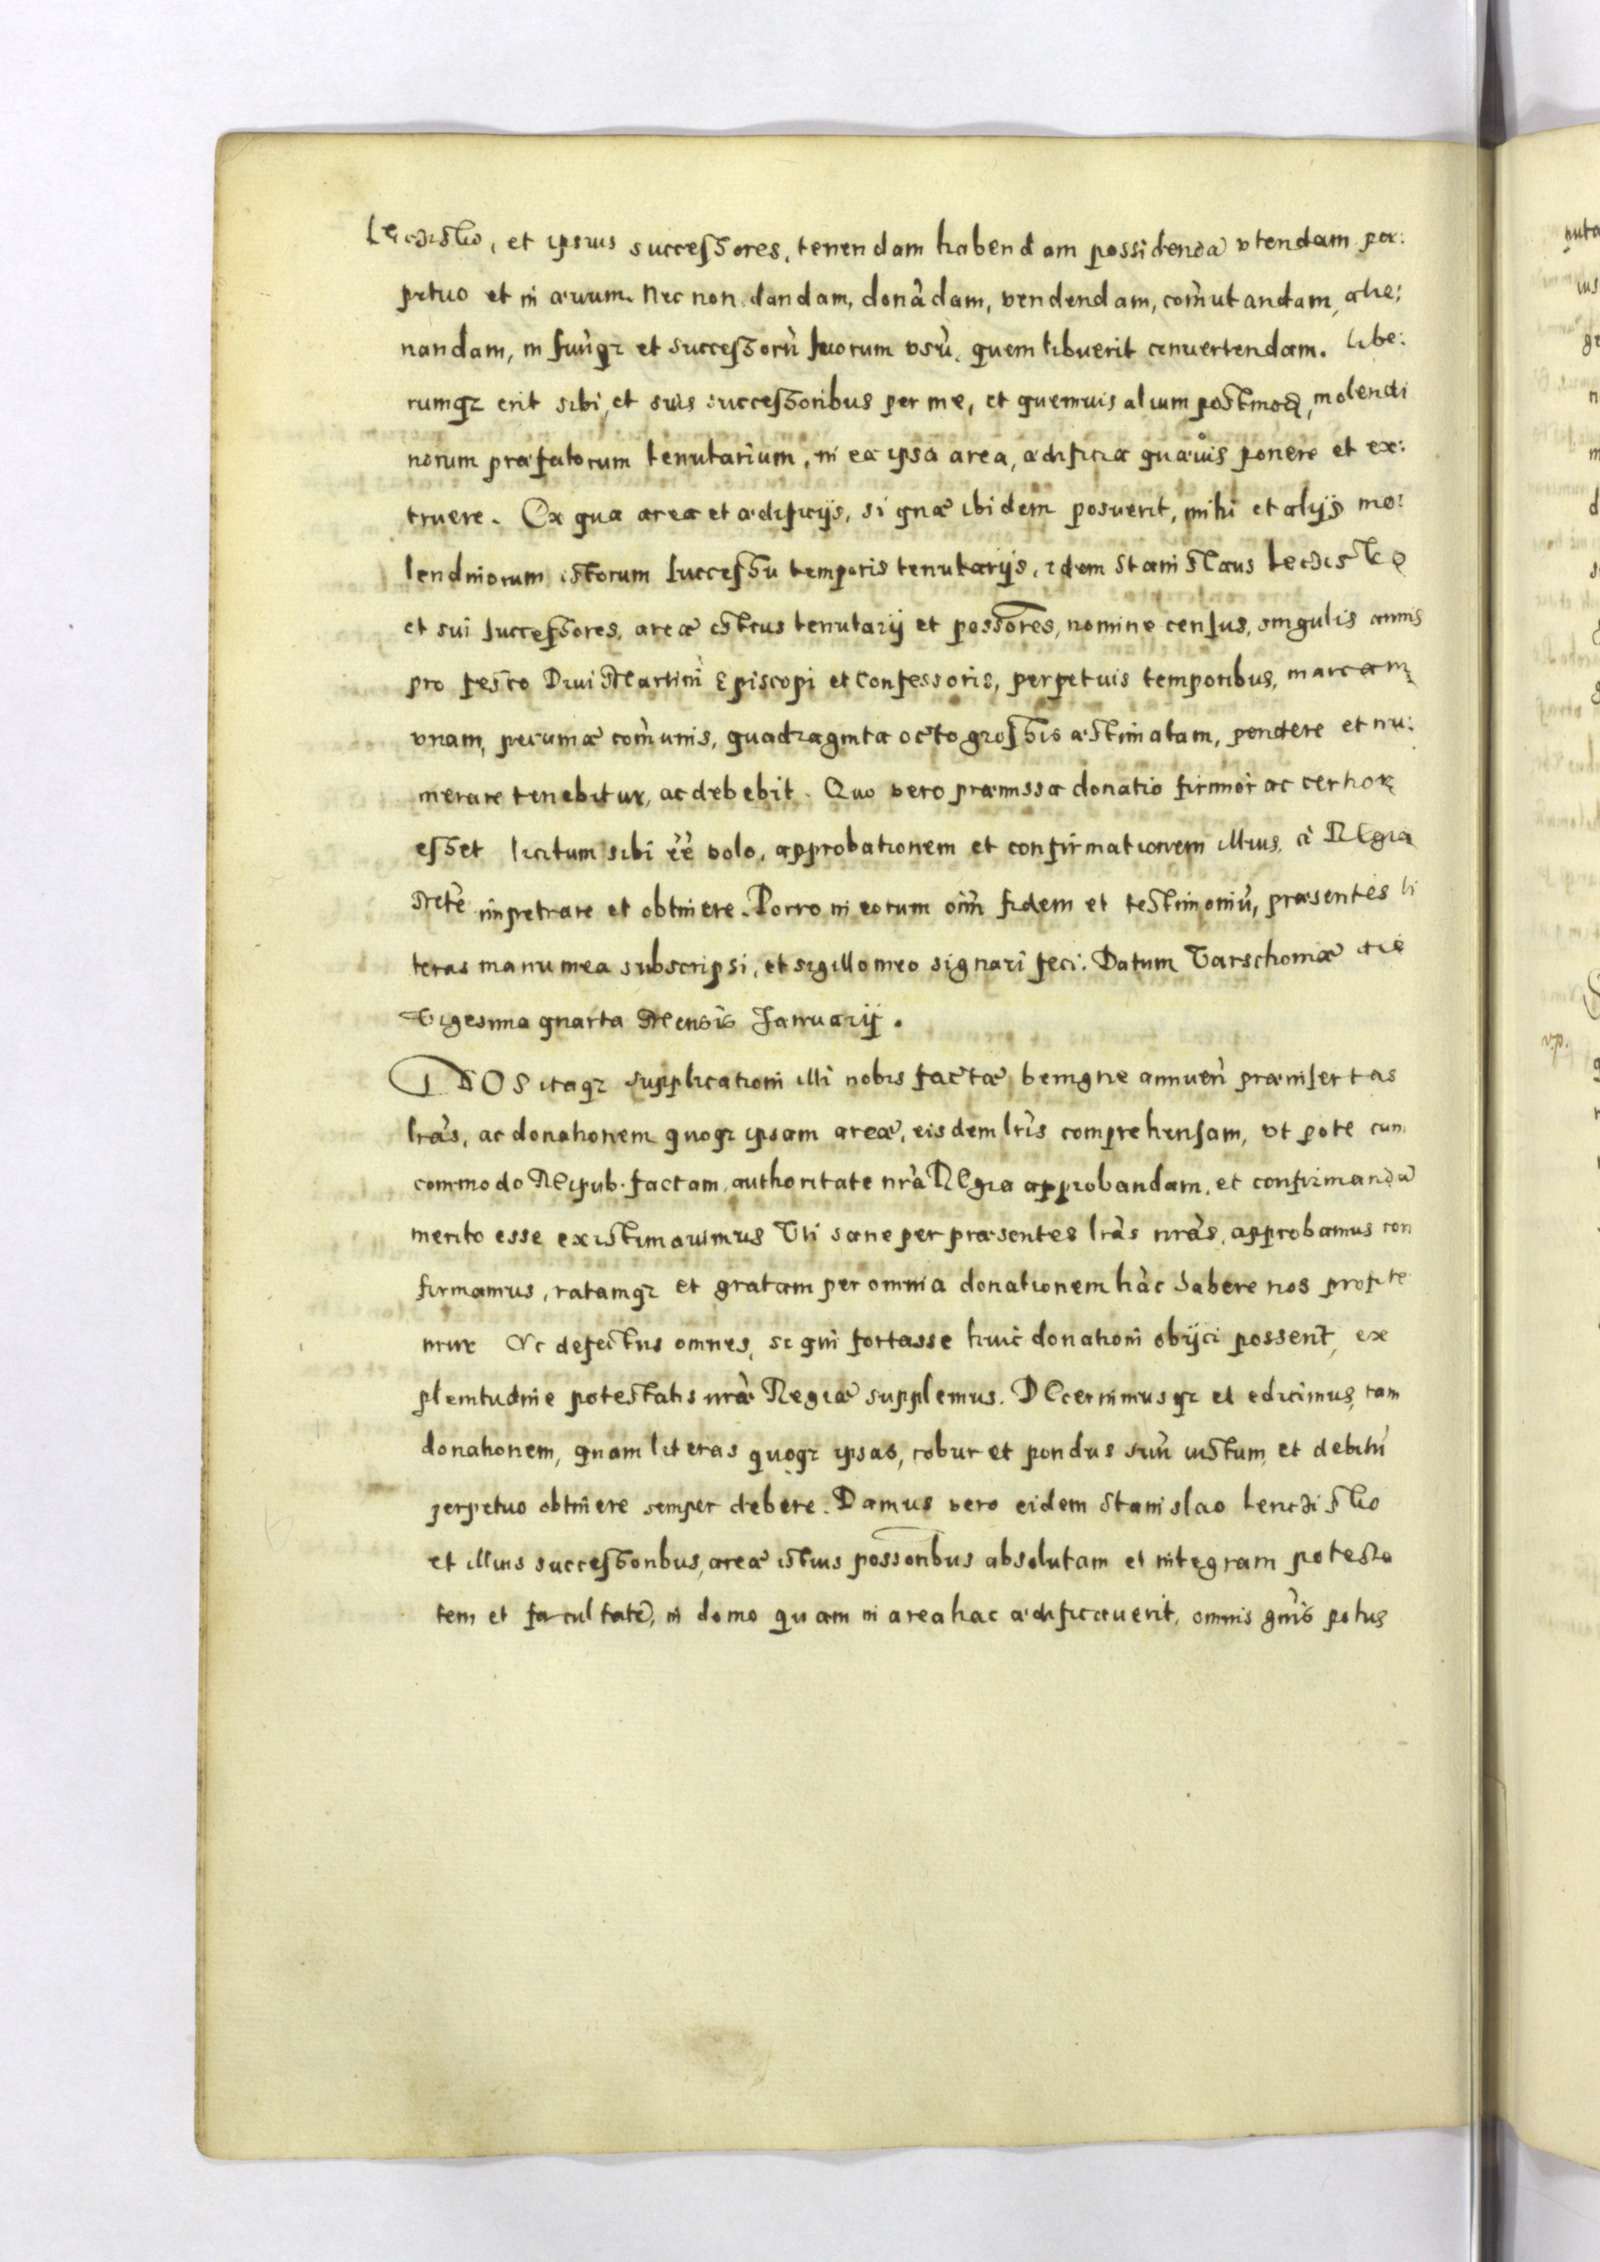 et ipsius successores, tenendam habendam possidendã vtendam per:
petuo et in æuum. Nec non dandam, donãdam, vendendam, com̃utandam, alie:
nandam, in suũqȝ et successorũ suorum vsũ, quem libuerit conuertendam. Libe:
rumqȝ erit sibi, et suis successoribus per me, et quemuis alium postmod, molendi
norum præfatorum tenutarium, in ea ipsa area, ædificia quæuis ponere et ex:
truere. Ex qua area et ædificijs, si quæ ibidem posuerit, mihi et alijs mo:
lendinorum istorum successu temporis tenutarijs, idem Stanislaus
et sui successores, areæ istius tenutarij et possores, nomine census, singulis annis
pro festo Diui Martini Episcopi et Confessoris, perpetuis temporibus, marcam
vnam, pecuniæ com̃unis, quadraginta octo grossis æstimatam, pendere et nu:
merare tenebitur, ac debebit. Quo vero præmissa donatio firmior ac certior
esset licitum sibi eẽ volo, approbationem et confirmationem illius à REgia
Mtẽ impetrare et obtinere. Porro in eorum oim̃ fidem et testimoniũ, præsentes li
teras manu mea subscripsi, et sigillo meo signari feci. Datum Varschouiæ die
Vigesima quarta Mensis Januarij.
NOS itaqȝ supplicationi illi nobis factæ benigne annueñ præinsertas
lrãs, ac donationem quoqȝ ipsam areæ, eisdem lrĩs comprehensam, vt pote cum
commodo REipub. factam, authoritate nrã REgia approbandam, et confirmandã
merito esse existimauimus Vti sane per præsentes lrãs nrãs, approbamus con
firmamus, ratamqȝ et gratam per omnia donationem hãc habere nos profite
mur Ac defectus omnes, si qui fortasse huic donationi obijci possent, ex
plenitudine potestatis nrã̃e Regiæ supplemus. DEcernimusqȝ et edicimus, tam
donationem, quam literas quoqȝ ipsas, robur et pondus suũ iustum, et debitũ
perpetuo obtinere semper debere. Damus vero eidem Stanislao
et illius successoribus, areæ istius possoribus absolutam et integram potesta
tem et facultatẽ, in domo quam in area hac ædificauerit, omnis gñis potus